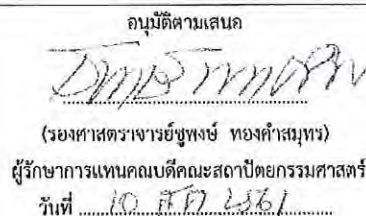 อนุมัติตามเสนอ
(รองศาสตราจารย์ชูพงษ์ ทองคำสมุทร)
ผู้รักษาการแทนคณบดีคณะสถาปัตยกรรมศาสตร์
วันที่ 10 สค 2561